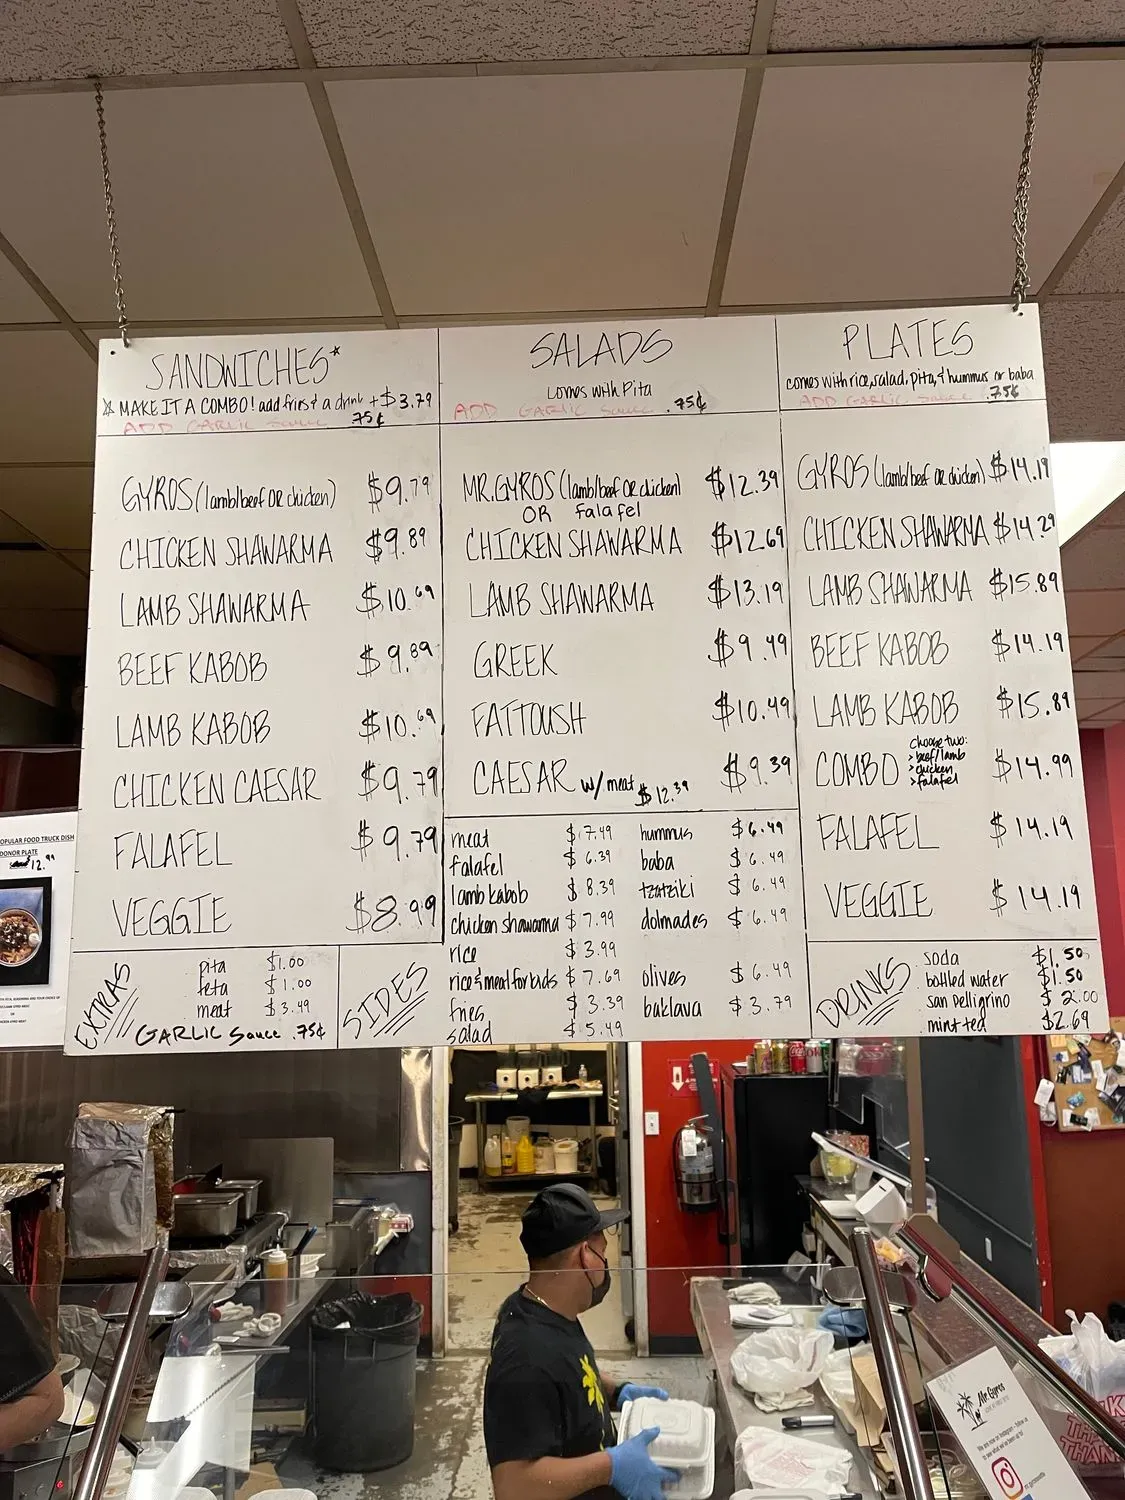 SANDWICHES*
☆ MAKE IT A COMBO! add fries & a drink + $3.79
ADD GARLIC Sauce .75¢
GYROS (lamb/beef OR chicken) $9.79
CHICKEN SHAWARMA $9.89
LAMB SHAWARMA $10.69
BEEF KABOB $9.89
LAMB KABOB $10.69
CHICKEN CAESAR $9.79
FALAFEL $9.79
VEGGIE $8.99
EXTRAS
pita $1.00
feta $1.00
meat $3.49
GARLIC Sauce .75¢
SALADS
comes with Pita
ADD GARLIC Sauce .75¢
MR. GYROS (lamb/beef OR chicken) $12.39
OR falafel
CHICKEN SHAWARMA $12.69
LAMB SHAWARMA $13.19
GREEK $9.49
FATTOUSH $10.49
CAESAR $9.39
w/ meat $12.39
SIDES
meat $7.49
falafel $6.39
lamb kabob $8.39
chicken shawarma $7.99
rice $3.99
rice & meat for kids $7.69
fries $3.39
salad $5.49
hummus $6.49
baba $6.49
tzatziki $6.49
dolmades $6.49
olives $6.49
baklava $3.79
PLATES
comes with rice, salad, pita, & hummus or baba
ADD GARLIC Sauce .75¢
GYROS (lamb/beef OR chicken) $14.19
CHICKEN SHAWARMA $14.29
LAMB SHAWARMA $15.89
BEEF KABOB $14.19
LAMB KABOB $15.89
COMBO $14.99
choose two:
> beef/lamb
> chicken
> falafel
FALAFEL $14.19
VEGGIE $14.19
DRINKS
soda $1.50
bottled water $1.50
san pelligrino $2.00
mint tea $2.69
OPULAR FOOD TRUCK DISH
DONOR PLATE
12.99
Mr. Gyros